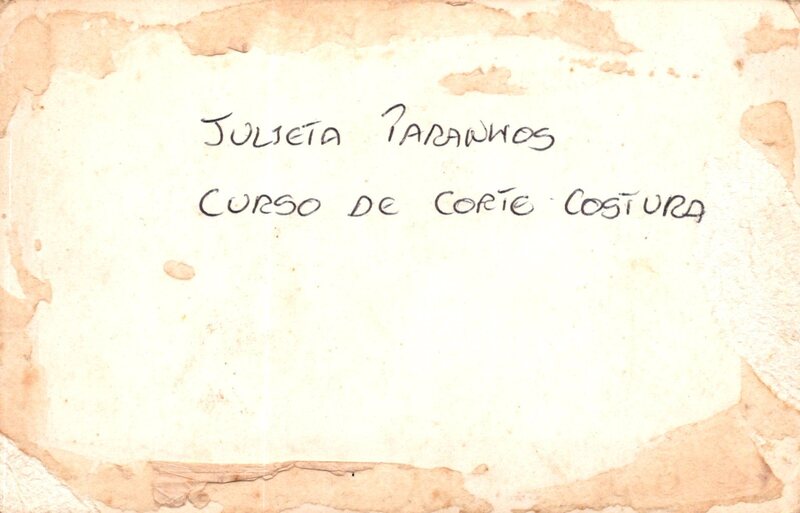 JULIETA PARANHOS
CURSO DE CORTE COSTURA